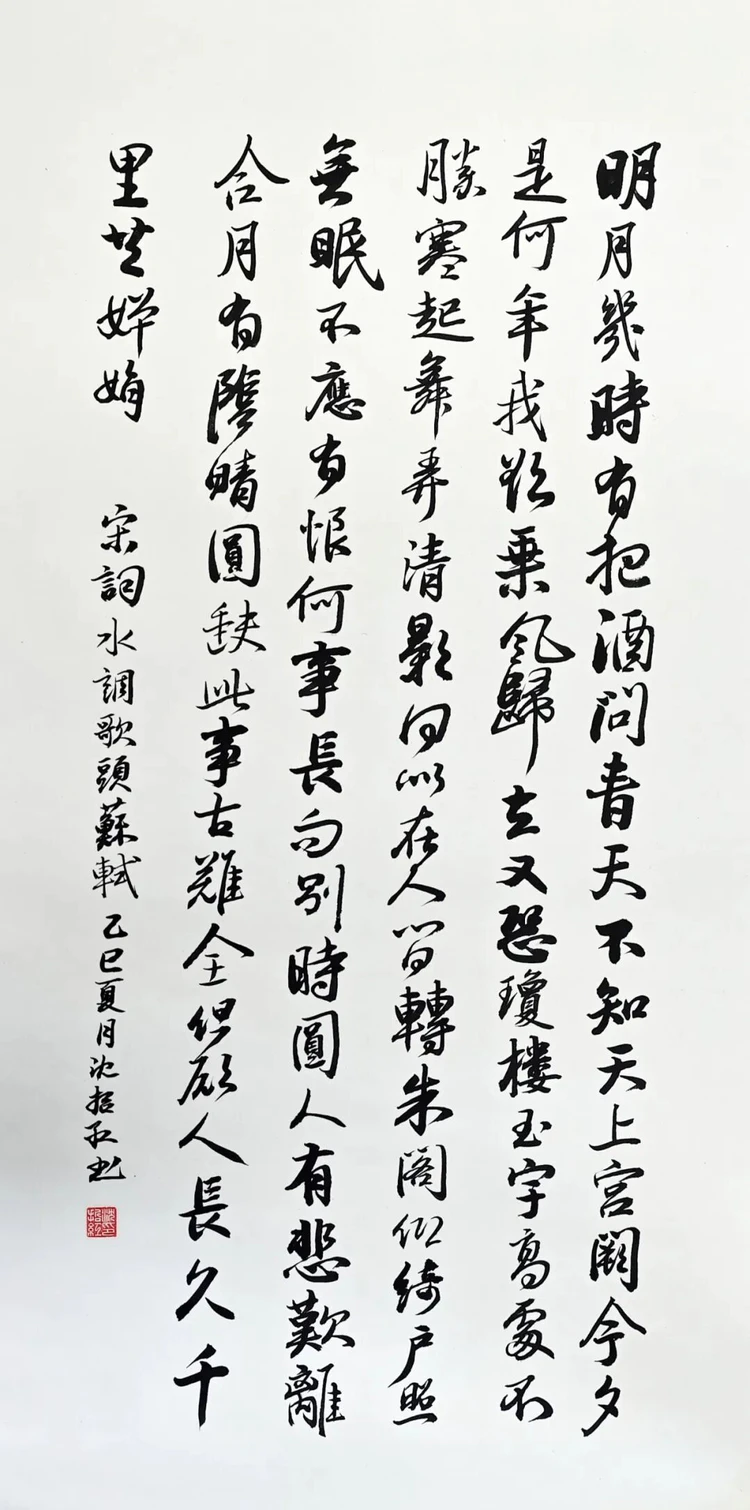 明月幾時有把酒問青天不知天上宮闕今夕
是何年我欲乘風歸去又恐瓊樓玉宇高處不
勝寒起舞弄清影何似在人間轉朱閣低綺戶照
無眠不應有恨何事長向別時圓人有悲歡離
合月有陰晴圓缺此事古難全但願人長久千
里共嬋娟
宋詞水調歌頭蘇軾乙巳夏月沈招紅書